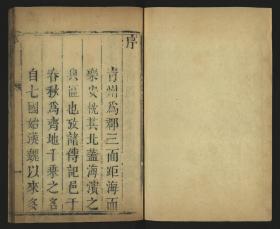 序
青州為郡三面距海而
樂安枕其北蓋海濱之
奧區也攷諸傳記邑于
春秋為齊地千乘之名
自七國始漢魏以來冬